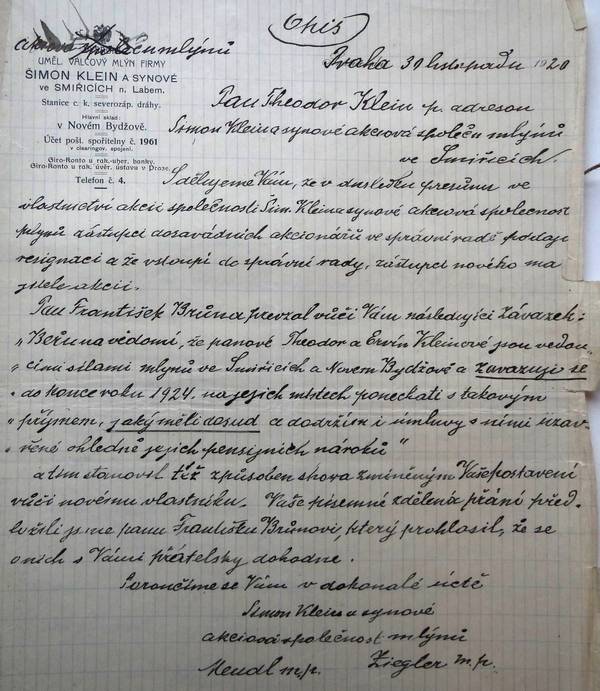 Opis
akciová společn mlýnů
Praha 30 listopadu 1920
UMĚL. VÁLCOVÝ MLÝN FIRMY
ŠIMON KLEIN A SYNOVÉ
VE SMIŘICÍCH N. LABEM.
Stanice c. k. severozáp. dráhy.
Hlavní sklad:
v Novém Bydžově.
Účet pošt. spořitelny č. 1961
v clearingov. spojení.
Giro-Konto u rak.-uher. banky.
Giro-Konto u rak. úvěr. ústavu v Praze.
Telefon č. 4.
Pan Theodor Klein p. adresou
Šimon Klein a synové akciová společn mlýnů
ve Smiřicích.
Sdělujeme Vám, že v důsledku přesunu ve
vlastnictví akcií společnosti Šim. Klein a synové akciová společnost
mlýnů zástupci dosavádních akcionářů ve správní radě podají
resignaci a že vstoupí do správní rady, zástupci nového ma
jitele akcií.
Pan František Brůna převzal vůči Vám následující závazek:
„Beřu na vědomí, že panové Theodor a Ervín Kleinové jsou vedou
„cími silami mlýnů ve Smiřicích a Novém Bydžově a zavazuji se
„do konce roku 1924. na jejich místech poneckati s takovým
„příjmem, jaký měli dosud a dodržím i úmluvy s nimi uzav
„řené ohledně jejich pensijních nároků"
a tím stanovil též způsobem shora zmíněným Vaše postavení
vůči novému vlastníku. Vaše písemně zdělená přání před
ložili jsme panu Františku Brůnovi, který prohlásil, že se
o nich s Vámi přátelsky dohodne.
Poroučíme se Vám v dokonalé úctě
Šimon Klein a synové
akciová společnost mlýnů
Mendl m.p. Ziegler m.p.